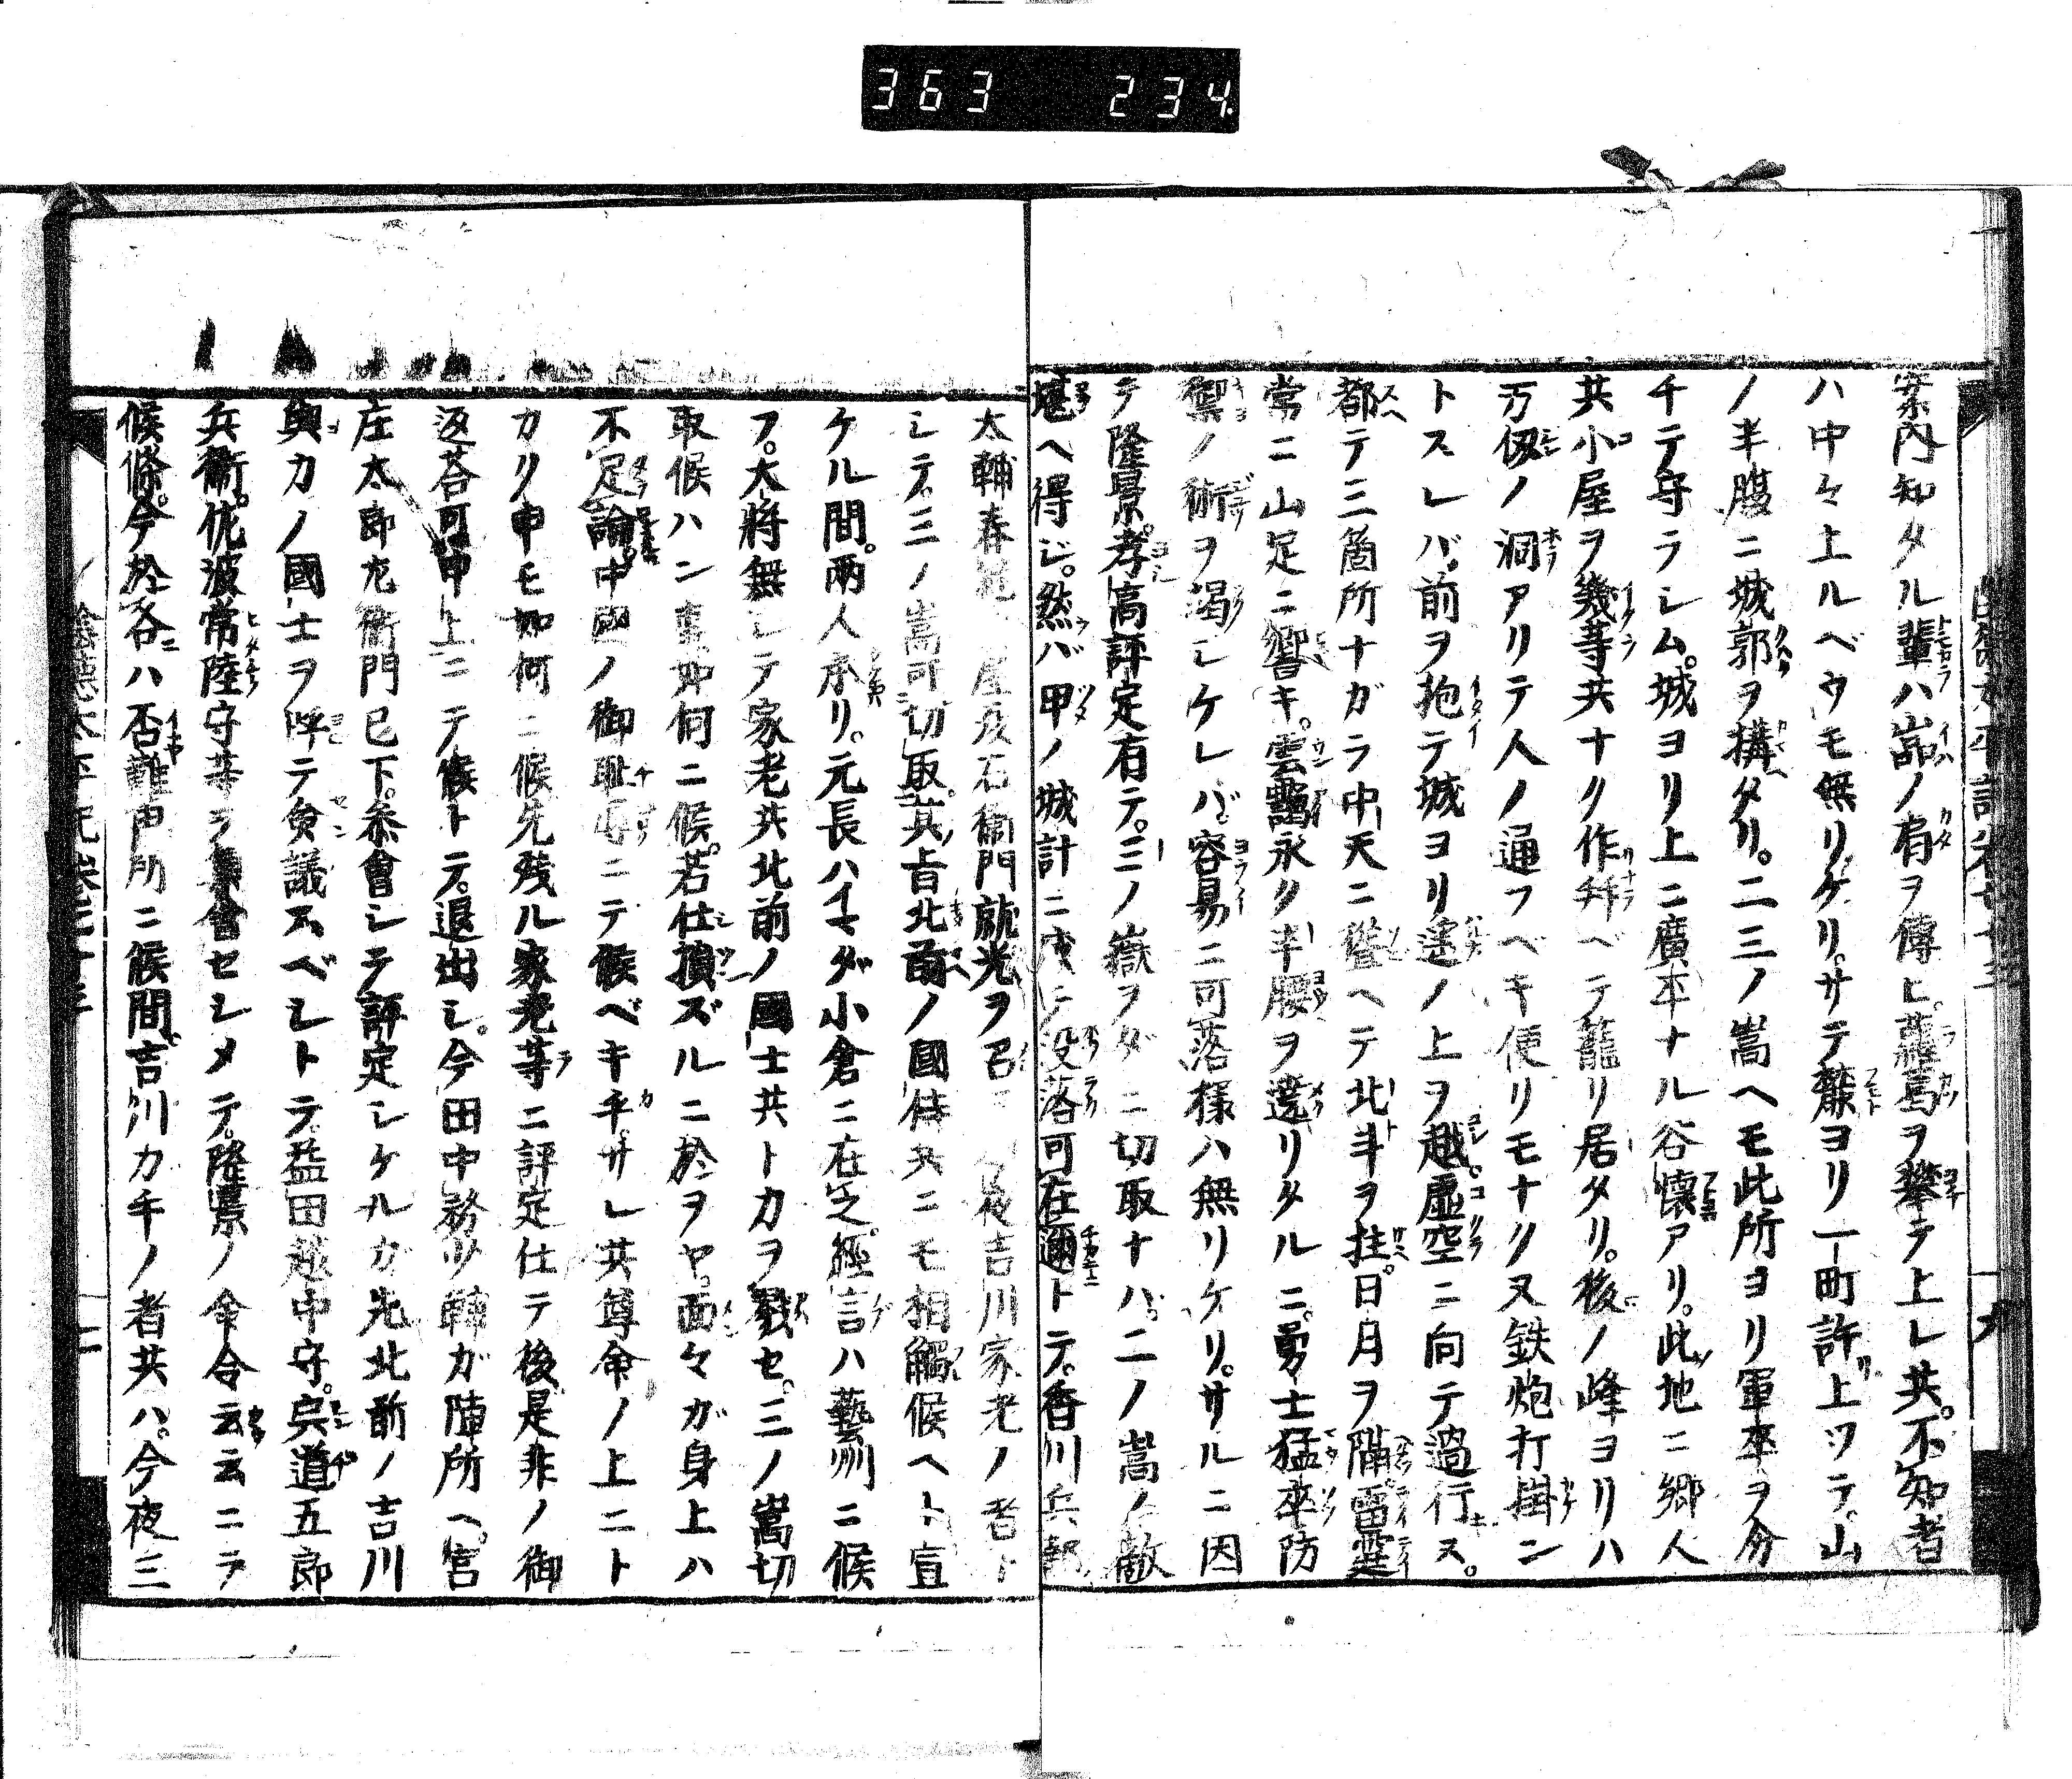 363 234
案内知タル輩ハ嵓ノ肩ヲ傳ヒ。蘿葛ヲ攀テ上レ共。不知者
ハ中々上ルベウモ無リケリ。サテ麓ヨリ一町許上ツテ。山
ノ半腹ニ城郭ヲ構タリ。二三ノ嵩ヘモ此所ヨリ軍卒ヲ分
チテ守ラシム。城ヨリ上ニ廣平ナル谷懐アリ。此地ニ郷人
共小屋ヲ幾等共ナク作双ベテ籠リ居タリ。後ノ峰ヨリハ
万仭ノ洞アリテ人ノ通フベキ便リモナク又鉄炮打掛ン
トスレバ。前ヲ抱テ城ヨリ遥ノ上ヲ越。虚空ニ向テ過行ス。
都テ三箇所ナガラ中天ニ聳ヘテ北斗ヲ拄。日月ヲ隔。雷霆
常ニ山足ニ響キ。雲靄永ク半腰ヲ遶リタルニ。勇士猛卒防
禦ノ術ヲ渇シケレバ。容易ニ可落様ハ無リケリ。サルニ因
テ隆景。孝高評定有テ。三ノ嶽ヲダニ切取ナハ。二ノ嵩ノ敵
堪ヘ得ジ。然バ甲ノ城計ニ成テ没落可在邇トテ。香川兵部
太輔春継 屋彦右衛門就光ヲ召 夜吉川家老ノ者ト
シテ。三ノ嵩可切取。其旨北前ノ國侍共ニモ相觸候ヘト宣
ケル間。両人承リ。元長ハイマダ小倉ニ在之。經言ハ藝州ニ候
フ。大將無シテ家老共北前ノ國士共トカヲ戮セ。三ノ嵩切
取候ハン事如何ニ候。若仕損ズルニ於ヲヤ。面々ガ身上ハ
不足論。中國ノ御耻辱ニテ候ベキ乎。サレ共尊命ノ上ニト
カク申モ如何ニ候先残ル家老等ニ評定仕テ後是非ノ御
返荅可申上ニテ候トテ。退出シ。今田中務少輔ガ陣所ヘ。宮
庄太郎左衛門已下。叅會シテ評定シケルガ先北前ノ吉川
與カノ國士ヲ呼テ僉議スベシトテ。益田越中守。宍道五郎
兵衛。佐波常陸守等ヲ集會セシメテ。隆景ノ命令云云ニテ
候條。今於各ハ否難申所ニ候間。吉川カ手ノ者共ハ。今夜三